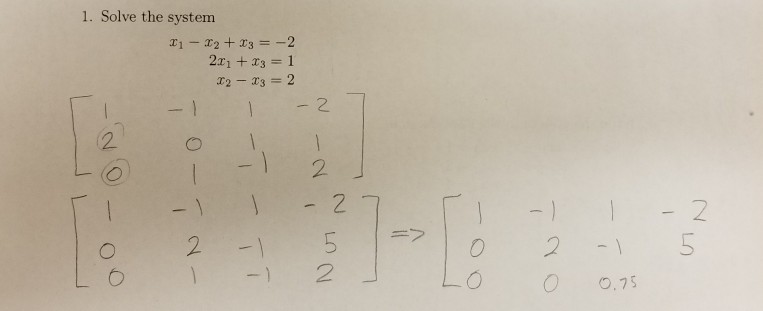 1. Solve the system
x₁ − x₂ + x₃ = −2
2x₁ + x₃ = 1
x₂ − x₃ = 2
[ 1 -1 1 -2
2 0 1 1
0 1 -1 2 ]
[ 1 -1 1 -2
0 2 -1 5
0 1 -1 2 ]
=> [ 1 -1 1 -2
0 2 -1 5
0 0 0.75